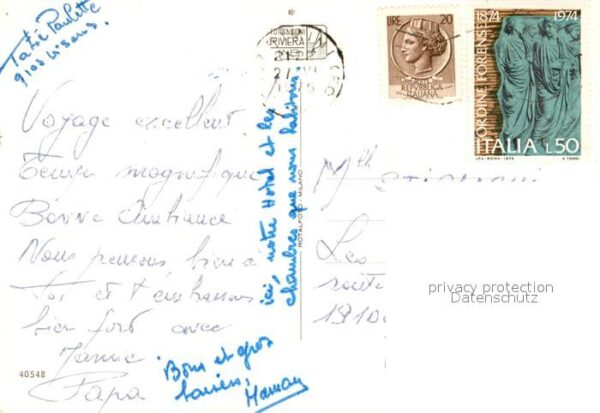 Tatie Paulette
Voyage excellent.
Temps magnifique
Bonne Ambiance
Nous pensons bien à
Toi et t'embrassons
bien fort avec
Papa
Bons et gros
baisers,
Maman
ici, notre Hotel et les
chambres que nous habitons.
40548
ROTALFOTO - MILANO
RIVIERA
LIRE 20
REPVBBLICA
ITALIANA
1874 1974
ORDINE FORENSE
ITALIA L.50
I.P.S.-ROMA-1974
Mlle
Les
route
privacy protection
Datenschutz